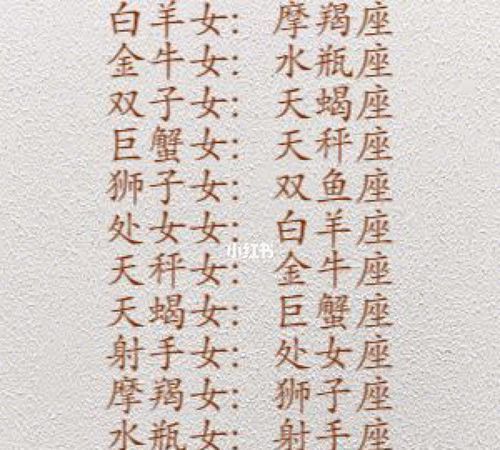 白羊女：摩羯座
金牛女：水瓶座
双子女：天蝎座
巨蟹女：天秤座
狮子女：双鱼座
处女女：白羊座
小红书
天秤女：金牛座
天蝎女：巨蟹座
射手女：处女座
摩羯女：狮子座
水瓶女：射手座